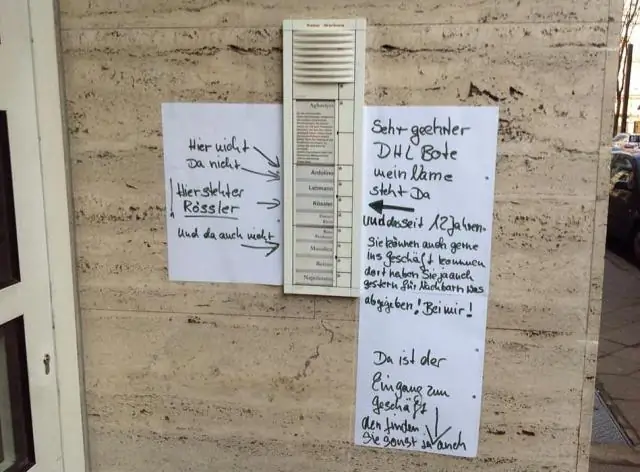 Keine Werbung
Hier nicht
Da nicht
Hier steht er
Rössler
und da auch nicht
Ardolino
Lehmann
Rössler
Sehr geehrter
DHL Bote
mein Name
steht Da
und das seit 12 Jahren.
Sie können auch gerne
ins Geschäft kommen
dort haben Sie ja auch
gestern für Nachbarn was
abgegeben! Bei mir!
Da ist der
Eingang zum
Geschäft
den finden
Sie sonst ja auch